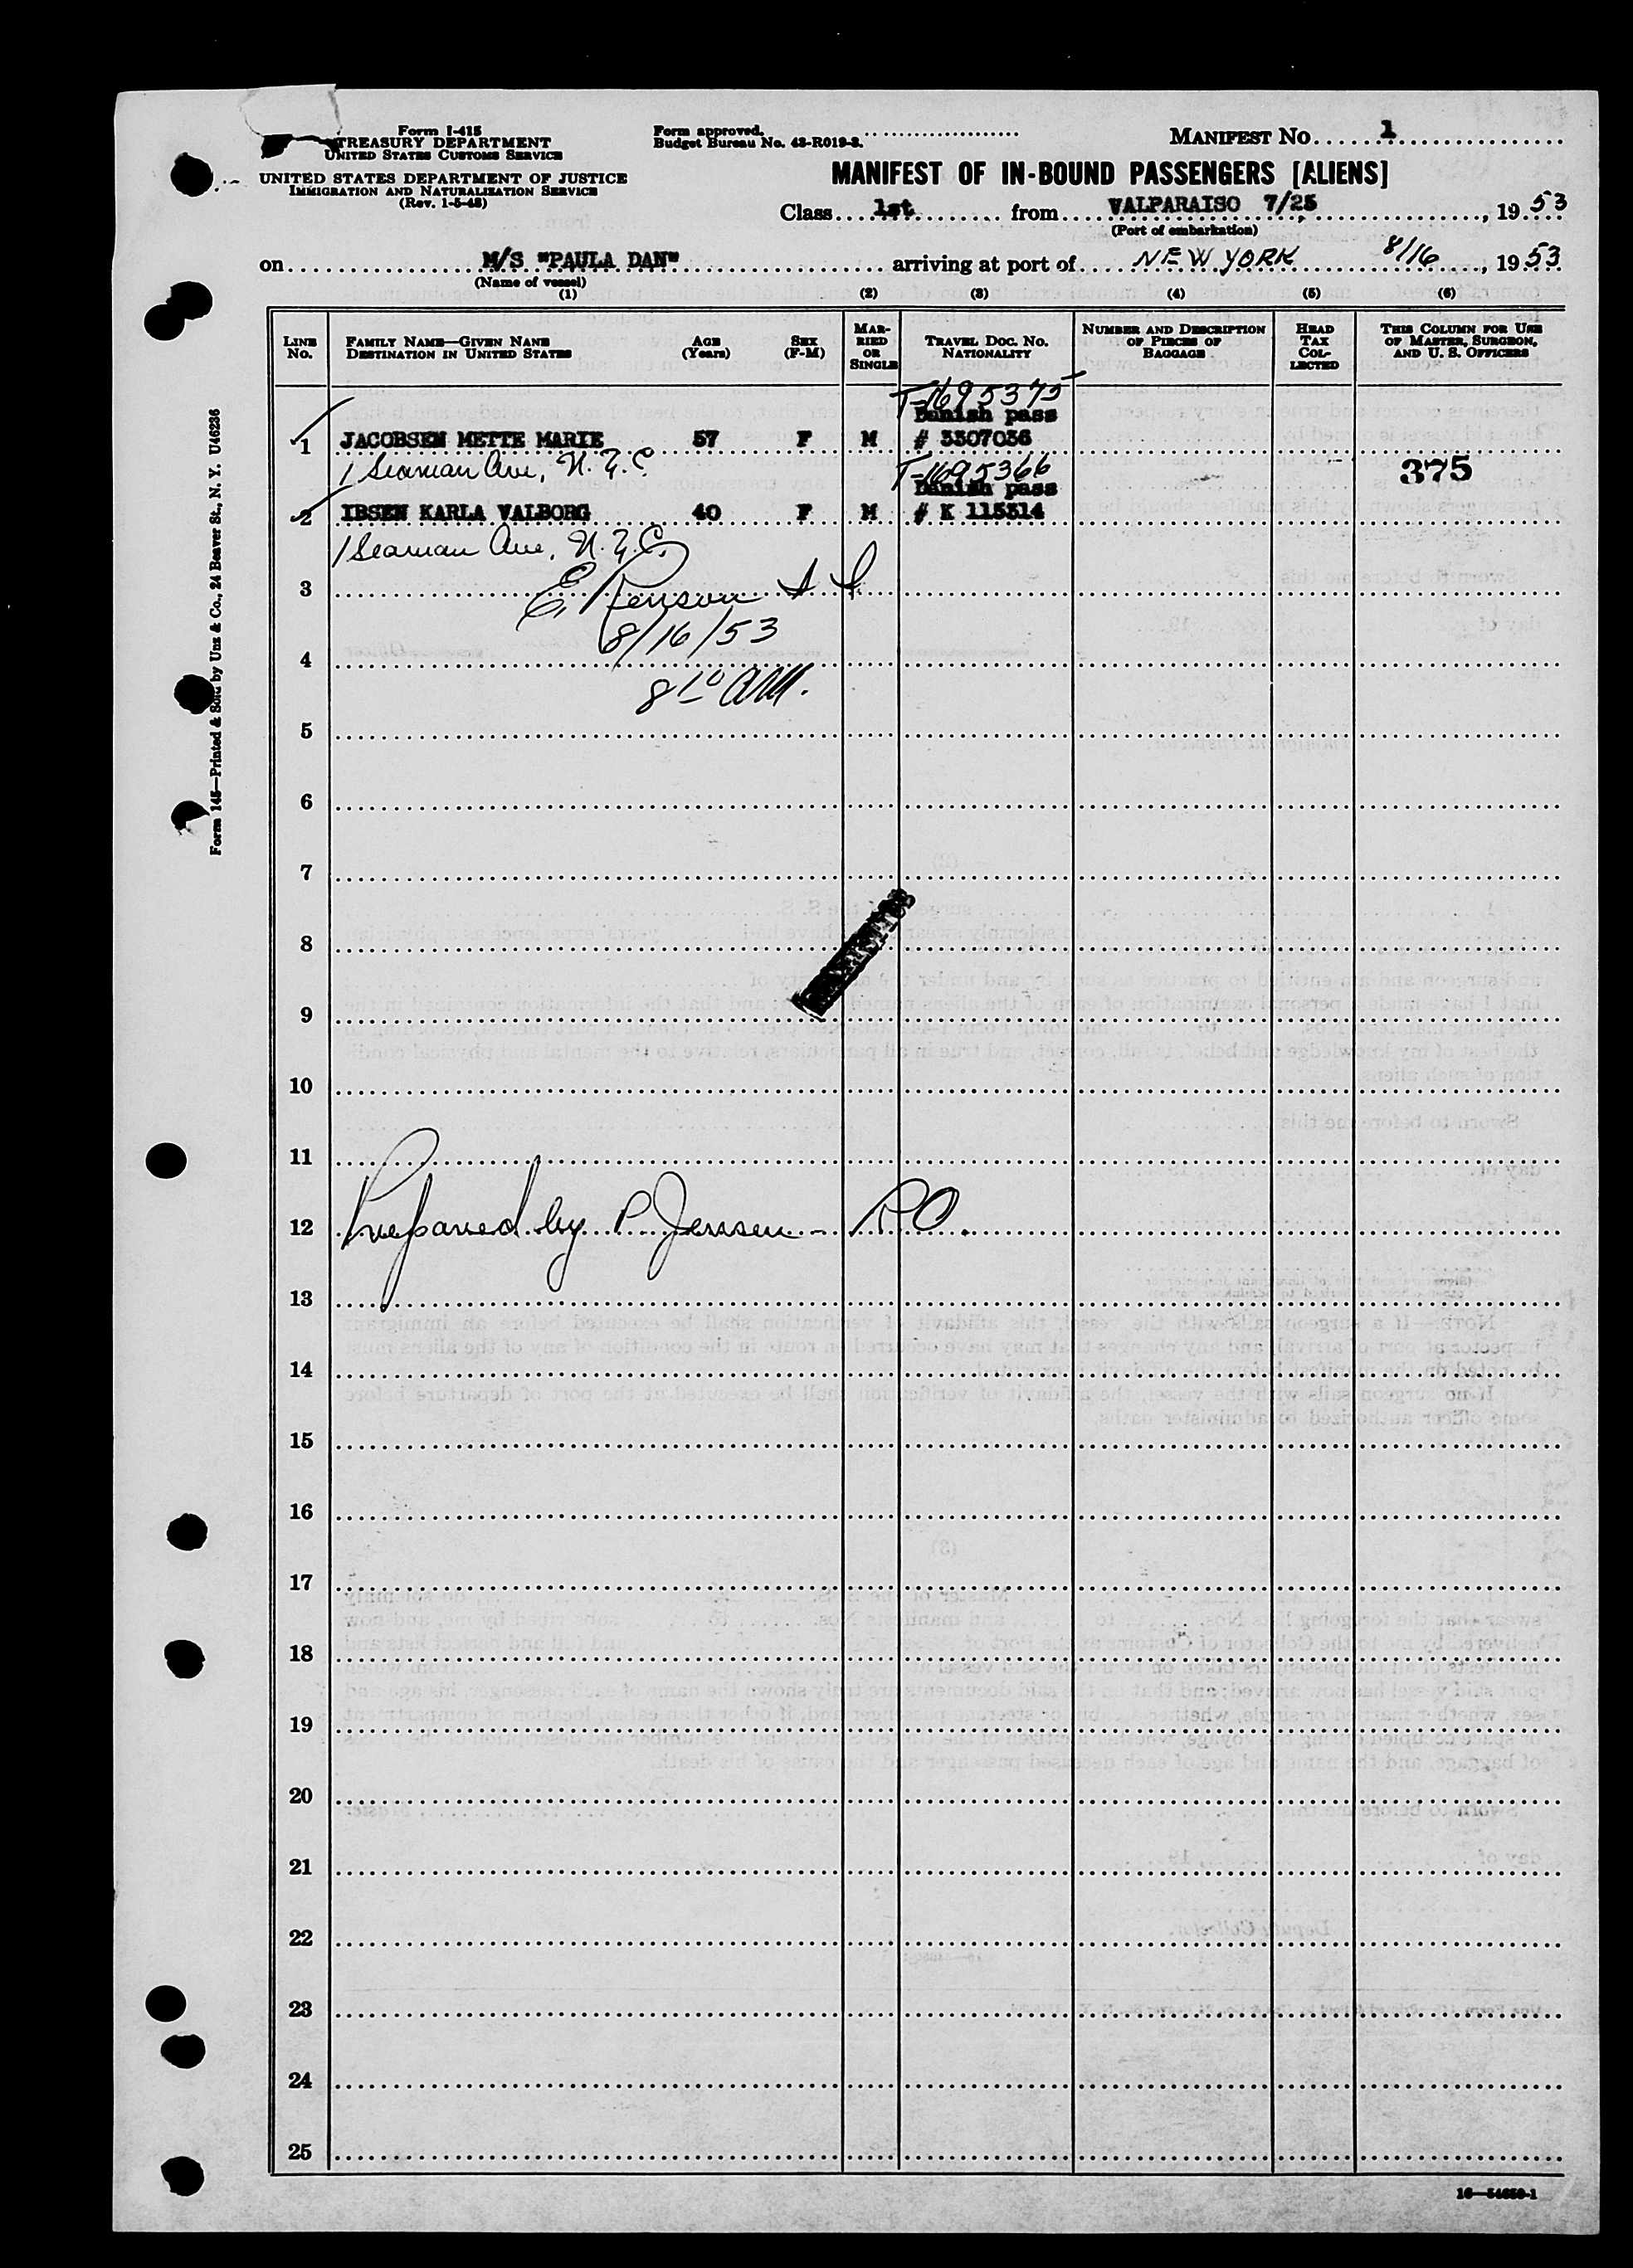 Form I-415
TREASURY DEPARTMENT
UNITED STATES CUSTOMS SERVICE
UNITED STATES DEPARTMENT OF JUSTICE
IMMIGRATION AND NATURALIZATION SERVICE
(Rev. 1-5-48)
Form approved.
Budget Bureau No. 43-R019-3.
MANIFEST NO. 1
MANIFEST OF IN-BOUND PASSENGERS [ALIENS]
Class 1st from VALPARAISO 7/25, 1953
(Port of embarkation)
on M/S "PAULA DAN" arriving at port of NEW YORK 8/16, 1953
(Name of vessel)
(1) (2) (3) (4) (5) (6)
LINE NO.
FAMILY NAME—GIVEN NAME
DESTINATION IN UNITED STATES
AGE (Years)
SEX (F-M)
MARRIED OR SINGLE
TRAVEL DOC. NO. NATIONALITY
NUMBER AND DESCRIPTION OF PIECES OF BAGGAGE
HEAD TAX COLLECTED
THIS COLUMN FOR USE OF MASTER, SURGEON, AND U. S. OFFICERS
T-1695375
Danish pass
1 JACOBSEN METTE MARIE 57 F M # 3307036
1 Seaman Ave, N.Y.C. T-1695366
375
Danish pass
2 IBSEN KARLA VALBORG 40 F M # K 115314
1 Seaman Ave, N.Y.C.
3
8/16/53
4
8 10 AM.
5
6
7
8
9
10
11
12 Prepared by P. Jensen - RO.
13
14
15
16
17
18
19
20
21
22
23
24
25
16—54650-1
Form 145—Printed & Sold by Unz & Co., 24 Beaver St., N. Y. U46236